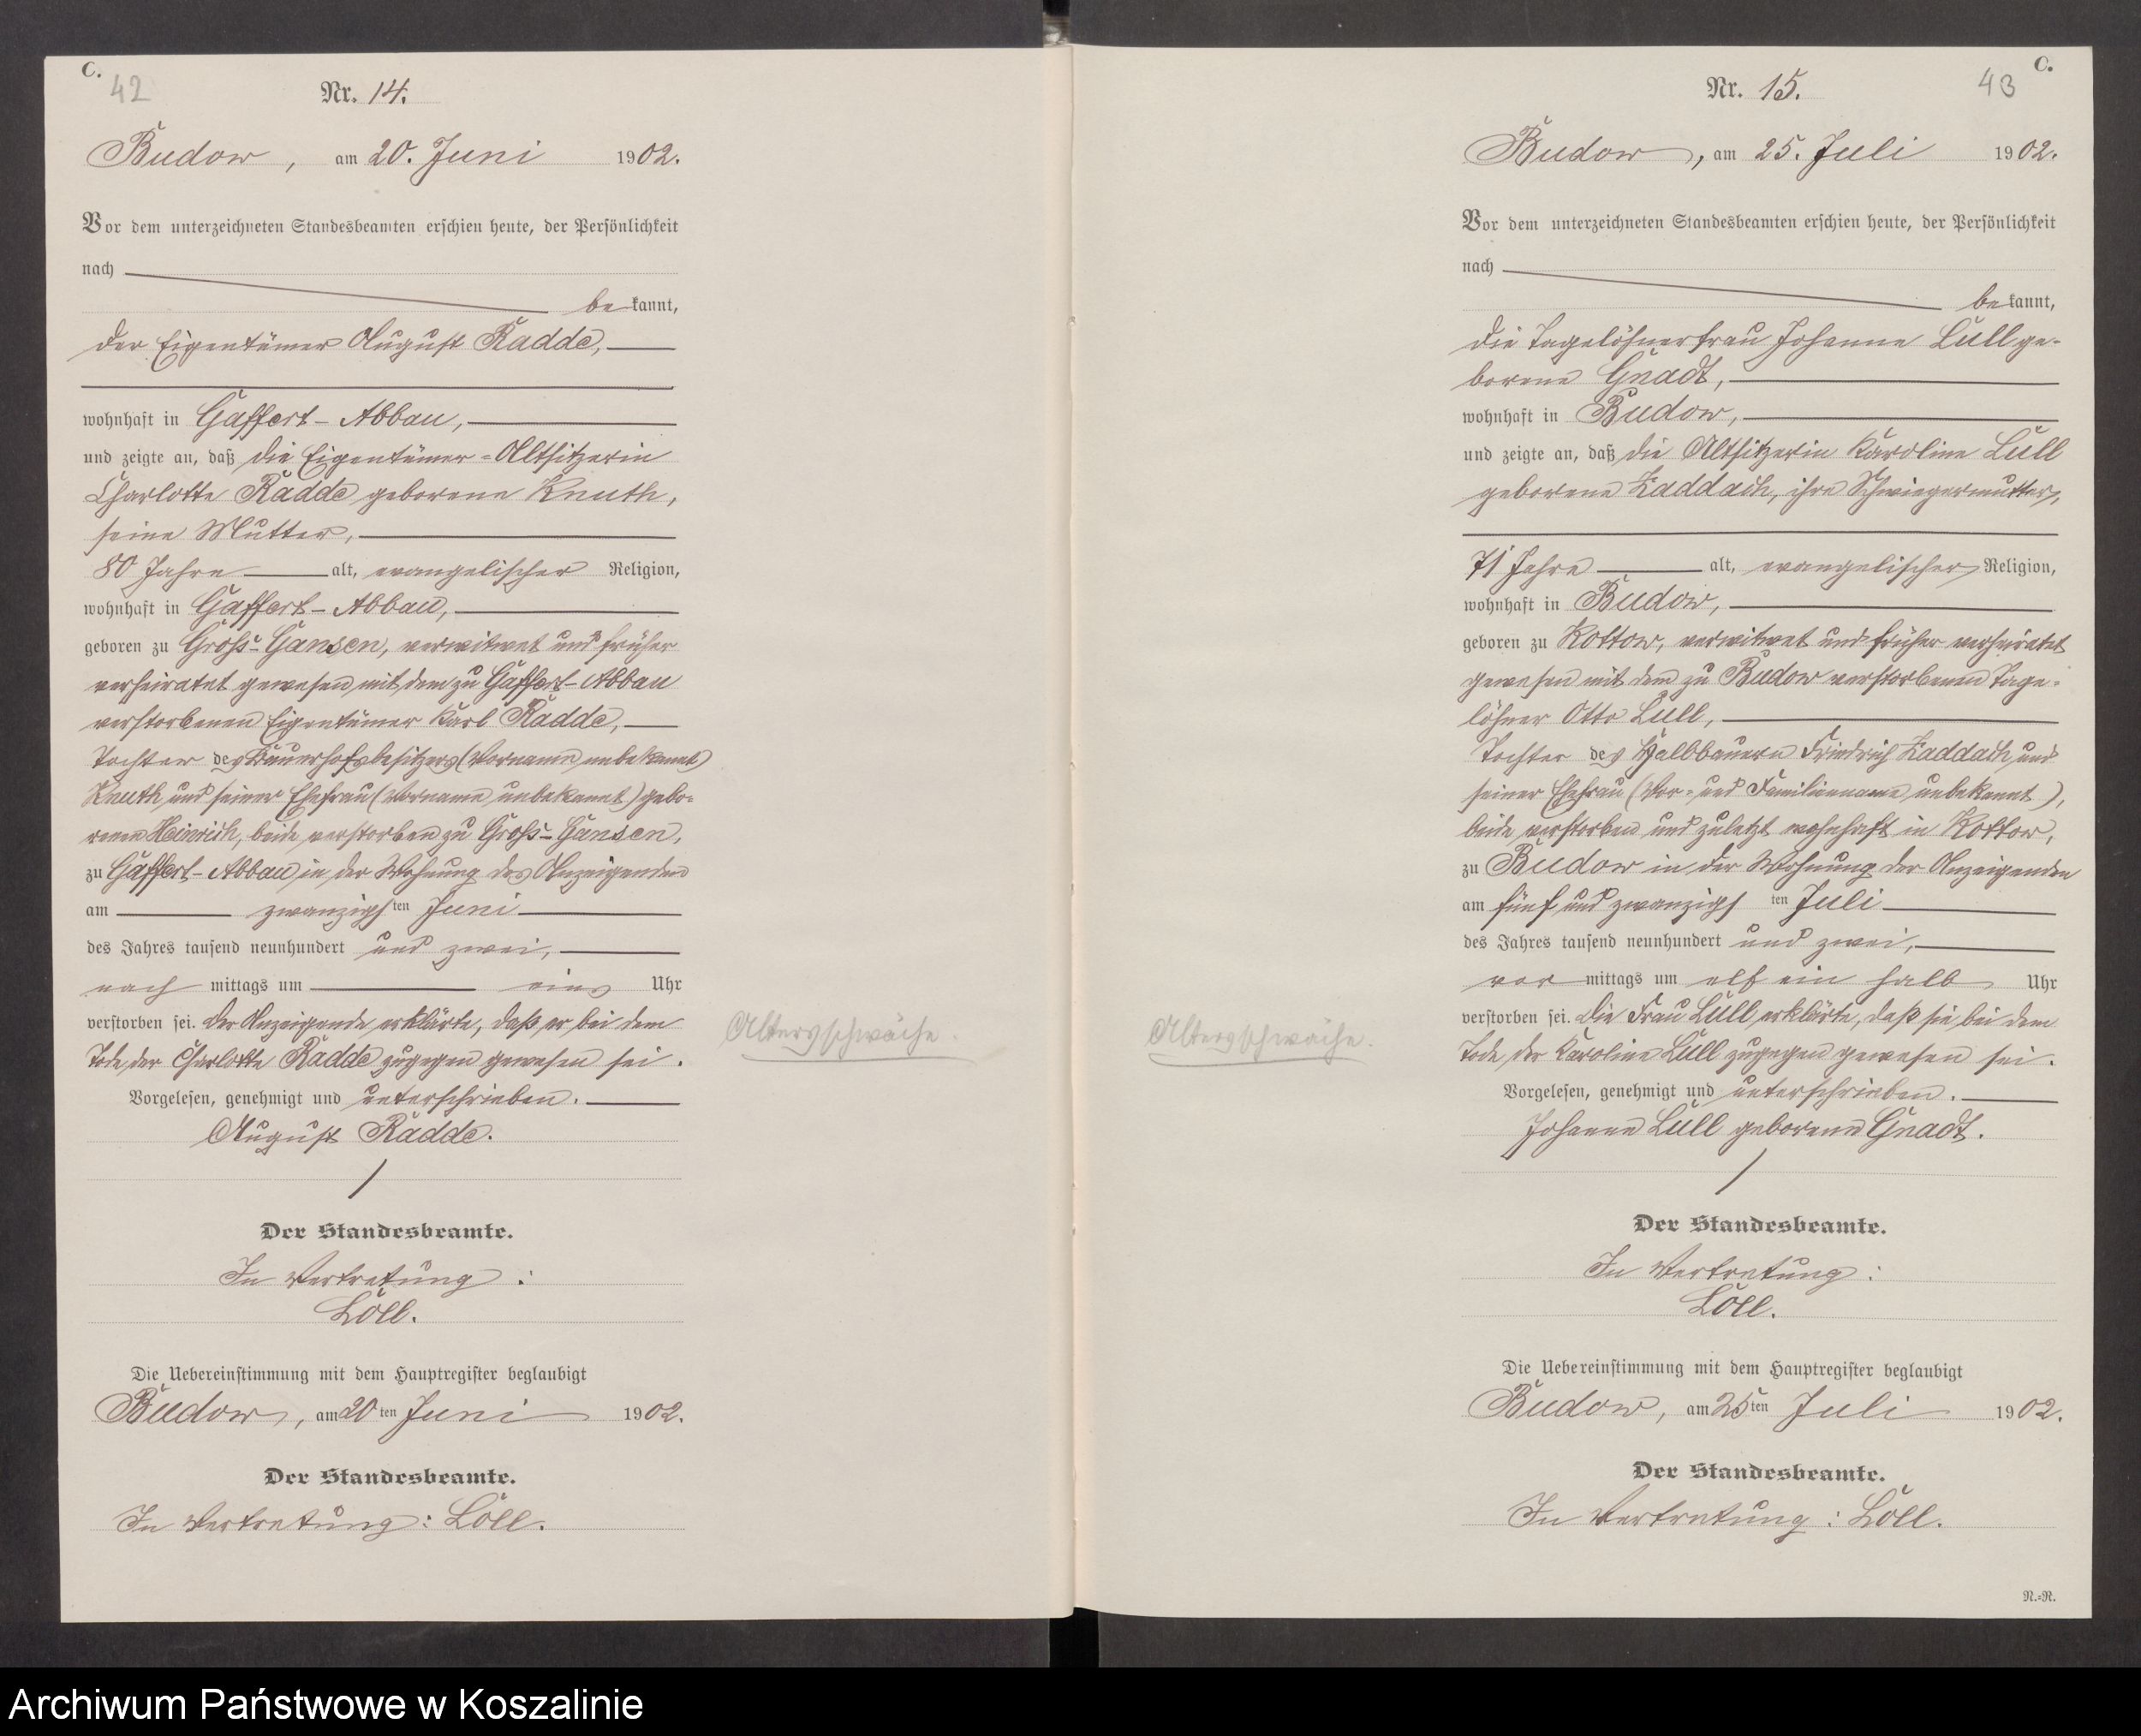 C.
42
Nr. 14.
Budow, am 20. Juni 1902.
Vor dem unterzeichneten Standesbeamten erschien heute, der Persönlichkeit
nach
be kannt,
der Eigentümer August Radde,
wohnhaft in Gaffert-Abbau,
und zeigte an, daß die Eigentümer-Altsitzerin
Charlotte Radde geborene Knuth,
seine Mutter,
80 Jahre alt, evangelischer Religion,
wohnhaft in Gaffert-Abbau,
geboren zu Groß-Gansen, verwitwet und früher
verheiratet gewesen mit dem zu Gaffert-Abbau
verstorbenen Eigentümer Karl Radde,
Tochter des Bauerhofsbesitzers (Vorname unbekannt)
Knuth und seiner Ehefrau (Vorname unbekannt) gebo-
renen Heinrich, beide verstorben zu Groß-Gansen,
zu Gaffert-Abbau in der Wohnung des Anzeigenden
am zwanzigsten Juni
des Jahres tausend neunhundert und zwei,
nach mittags um eins Uhr
verstorben sei. Der Anzeigende erklärte, daß er bei dem
Tode der Charlotte Radde zugegen gewesen sei.
Altersschwäche.
Vorgelesen, genehmigt und unterschrieben.
August Radde.
Der Standesbeamte.
In Vertretung:
Löll.
Die Uebereinstimmung mit dem Hauptregister beglaubigt
Budow, am 20ten Juni 1902.
Der Standesbeamte.
In Vertretung: Löll.
C.
43
Nr. 15.
Budow, am 25. Juli 1902.
Vor dem unterzeichneten Standesbeamten erschien heute, der Persönlichkeit
nach
be kannt,
die Tagelöhnerfrau Johanne Lüll ge-
borene Gnadt,
wohnhaft in Budow,
und zeigte an, daß die Altsitzerin Karoline Lüll
geborene Zaddach, ihre Schwiegermutter,
71 Jahre alt, evangelischer Religion,
wohnhaft in Budow,
geboren zu Kottow, verwitwet und früher verheiratet
gewesen mit dem zu Budow verstorbenen Tage-
löhner Otto Lüll,
Tochter des Halbbauern Friedrich Zaddach und
seiner Ehefrau (Vor- und Familienname unbekannt),
beide verstorben und zuletzt wohnhaft in Kottow,
zu Budow in der Wohnung der Anzeigenden
am fünf und zwanzigsten Juli
des Jahres tausend neunhundert und zwei,
vor mittags um elf ein halb Uhr
verstorben sei. Die Frau Lüll erklärte, daß sie bei dem
Tode der Karoline Lüll zugegen gewesen sei.
Altersschwäche.
Vorgelesen, genehmigt und unterschrieben.
Johanne Lüll geborene Gnadt.
Der Standesbeamte.
In Vertretung:
Löll.
Die Uebereinstimmung mit dem Hauptregister beglaubigt
Budow, am 25ten Juli 1902.
Der Standesbeamte.
In Vertretung: Löll.
N.=N.
Archiwum Państwowe w Koszalinie